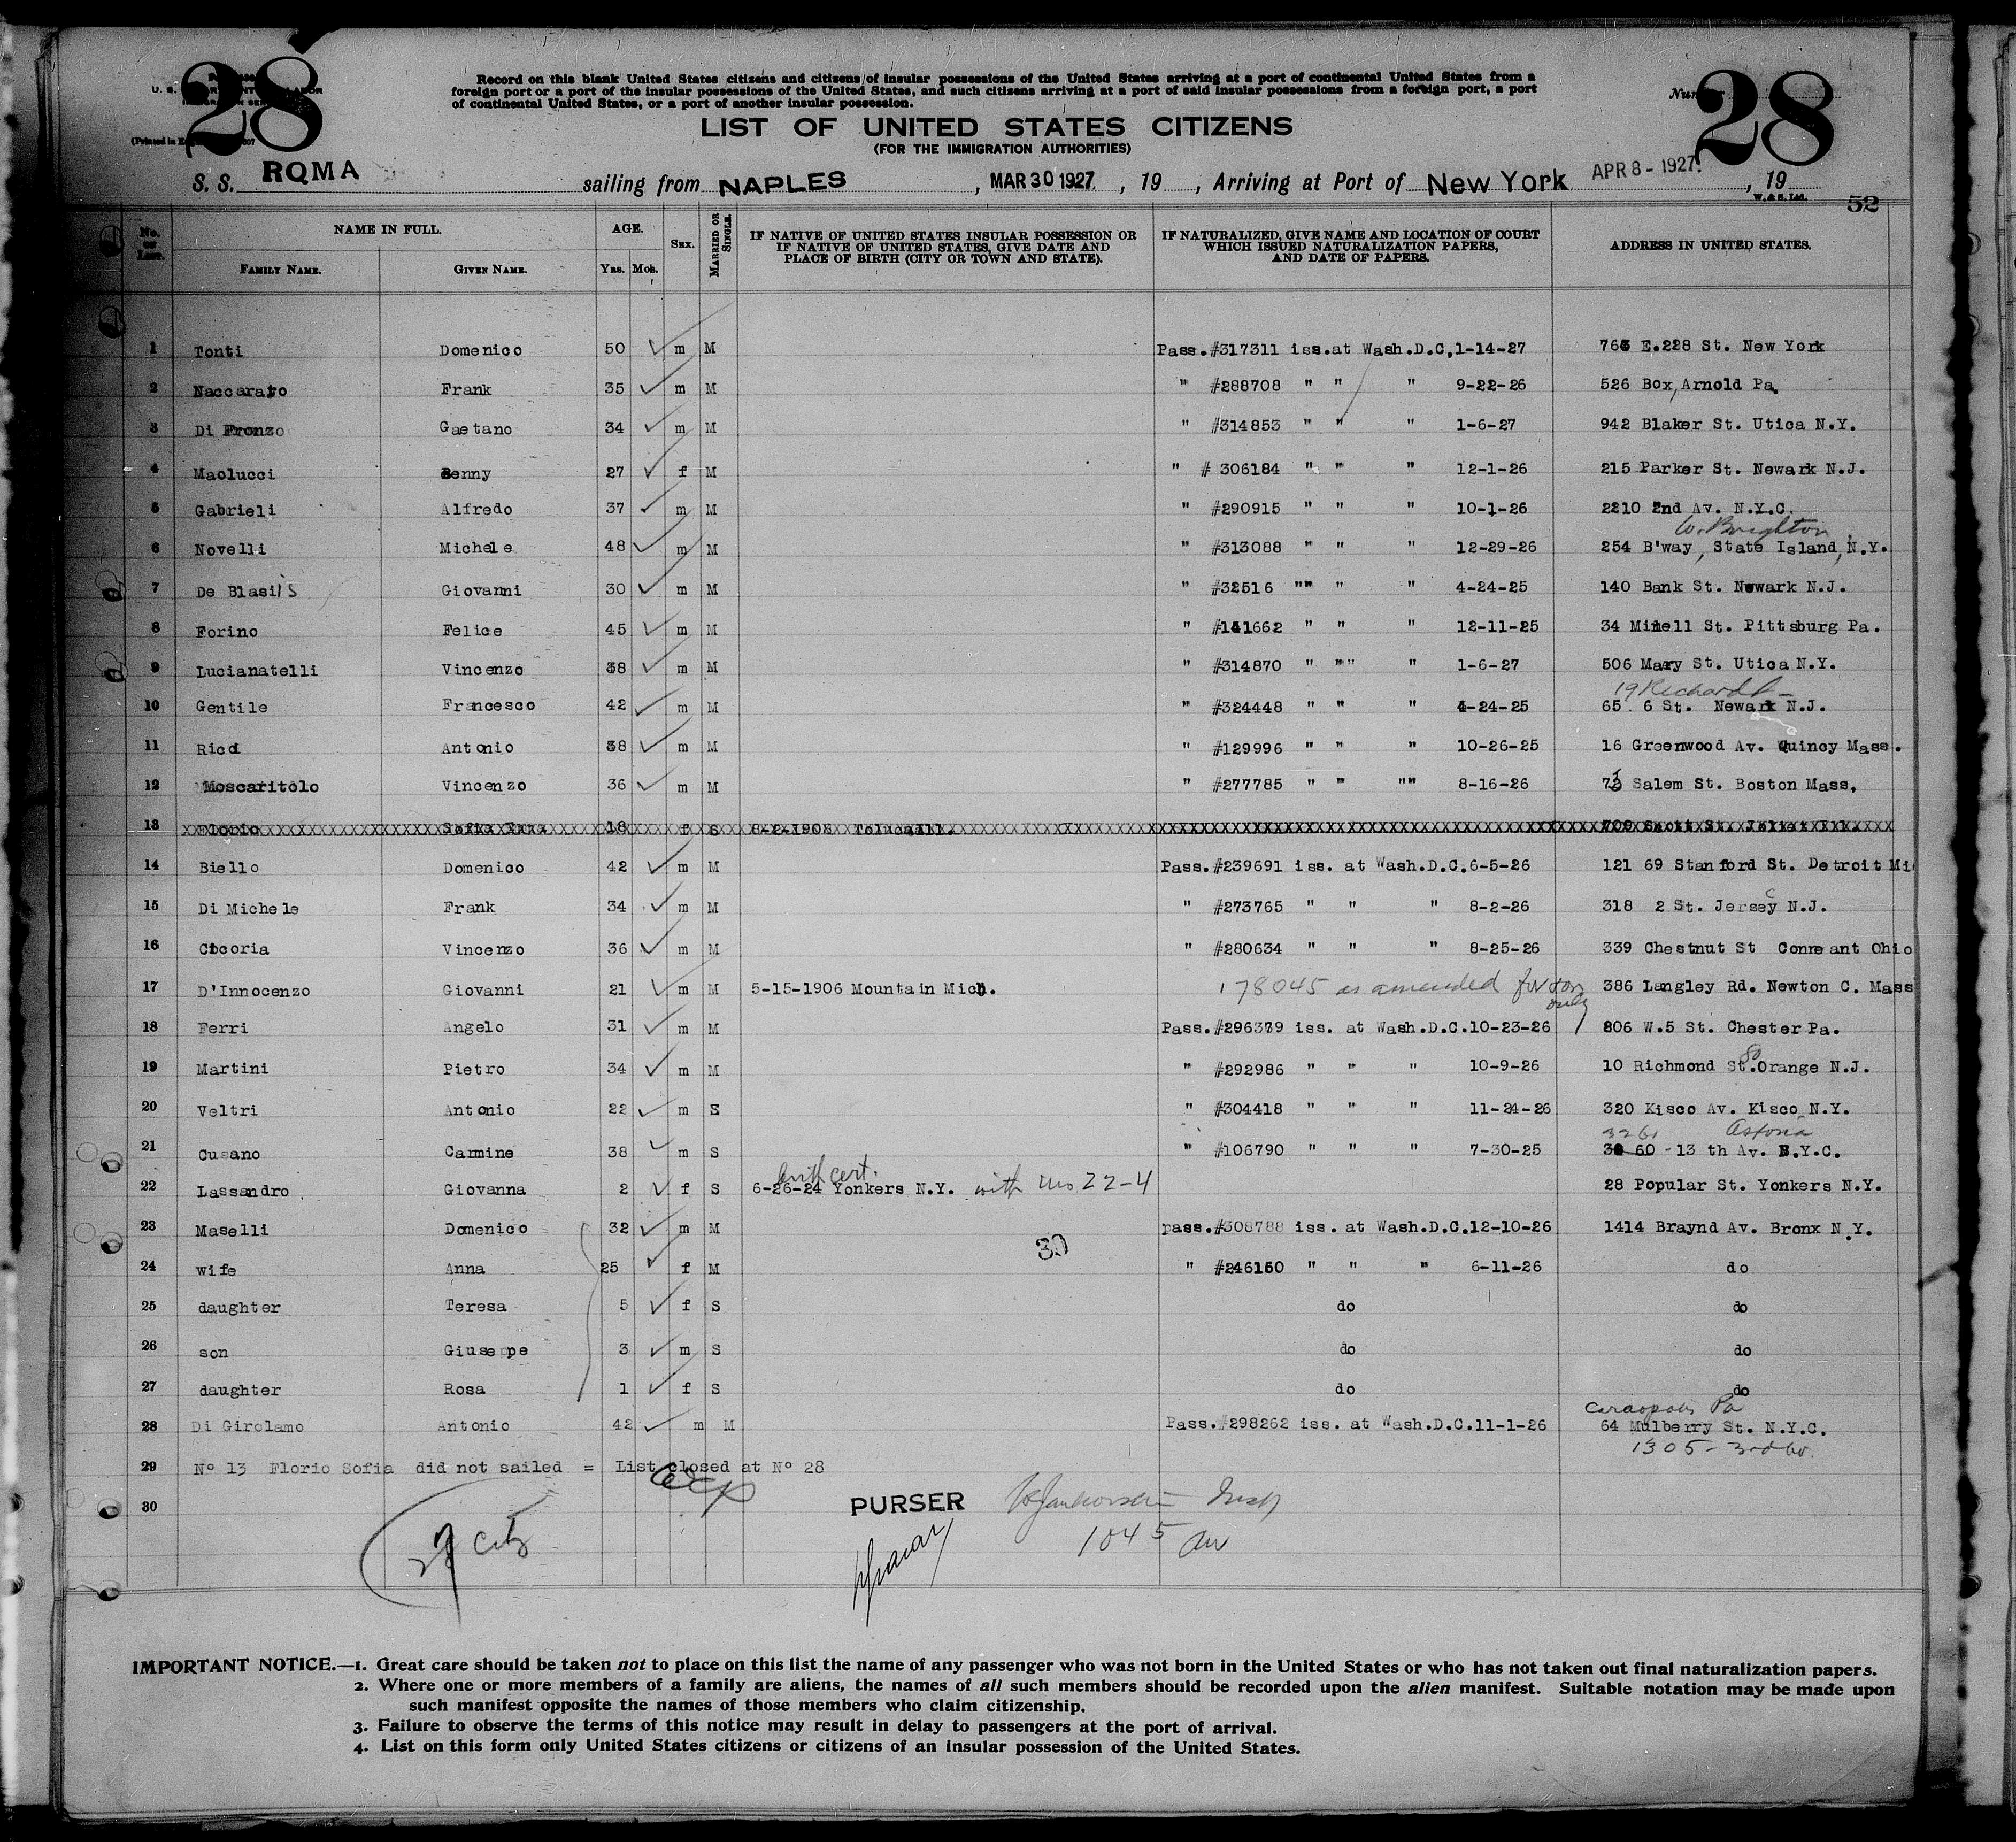 28
28
U. S.
Record on this blank United States citizens and citizens of insular possessions of the United States arriving at a port of continental United States from a
foreign port or a port of the insular possessions of the United States, and such citizens arriving at a port of said insular possessions from a foreign port, a port
of continental United States, or a port of another insular possession.
LIST OF UNITED STATES CITIZENS
(FOR THE IMMIGRATION AUTHORITIES)
S. S. ROMA sailing from NAPLES, MAR 30 1927, 19 , Arriving at Port of New York APR 8 - 1927, 19
W. & S. Ltd.
52
No. on List. NAME IN FULL. AGE. SEX. MARRIED OR SINGLE. IF NATIVE OF UNITED STATES INSULAR POSSESSION OR IF NATIVE OF UNITED STATES, GIVE DATE AND PLACE OF BIRTH (CITY OR TOWN AND STATE). IF NATURALIZED, GIVE NAME AND LOCATION OF COURT WHICH ISSUED NATURALIZATION PAPERS, AND DATE OF PAPERS. ADDRESS IN UNITED STATES.
FAMILY NAME. GIVEN NAME. YRS. MOS.
1 Tonti Domenico 50 m M Pass.#317311 iss.at Wash.D.C,1-14-27 763 E.228 St. New York
2 Naccarato Frank 35 m M " #288708 " " " 9-22-26 526 Box,Arnold Pa.
3 Di Fronzo Gaetano 34 m M " #314853 " " " 1-6-27 942 Blaker St. Utica N.Y.
4 Maolucci Benny 27 f M " # 306184 " " " 12-1-26 215 Parker St. Newark N.J.
5 Gabrieli Alfredo 37 m M " #290915 " " " 10-1-26 2210 2nd Av. N.Y.C.
W. Brighton
6 Novelli Michele 48 m M " #313088 " " " 12-29-26 254 B'way, State Island, N.Y.
7 De Blasiis Giovanni 30 m M " #32516 "" " " 4-24-25 140 Bank St. Newark N.J.
8 Forino Felice 45 m M " #141662 " " " 12-11-25 34 Minell St. Pittsburg Pa.
9 Lucianatelli Vincenzo 38 m M " #314870 " "" " 1-6-27 506 Mary St. Utica N.Y.
19 Richard
10 Gentile Francesco 42 m M " #324448 " " " 4-24-25 65 6 St. Newark N.J.
11 Ricci Antonio 38 m M " #129996 " " " 10-26-25 16 Greenwood Av. Quincy Mass.
12 Moscaritolo Vincenzo 36 m M " #277785 " " "" 8-16-26 Salem St. Boston Mass,
13 Florio Sofia Anna 18 f S 8-2-1908 709 Scott St. Joliet Ill.
14 Biello Domenico 42 m M Pass.#239691 iss. at Wash.D.C.6-5-26 121 69 Stanford St. Detroit Mi
15 Di Michele Frank 34 m M " #273765 " " " 8-2-26 318 2 St. Jersey C N.J.
16 Cicoria Vincenzo 36 m M " #280634 " " " 8-25-26 339 Chestnut St Conneant Ohio
17 D'Innocenzo Giovanni 21 m M 5-15-1906 Mountain Mich. 178045 as amended for son only 386 Langley Rd. Newton C. Mass
18 Ferri Angelo 31 m M Pass.#296379 iss. at Wash.D.C.10-23-26 806 W.5 St. Chester Pa.
19 Martini Pietro 34 m M " #292986 " " " 10-9-26 10 Richmond St. So Orange N.J.
20 Veltri Antonio 22 m S " #304418 " " " 11-24-26 320 Kisco Av. Kisco N.Y.
3260 Astoria
21 Cusano Carmine 38 m S " #106790 " " " 7-30-25 30 60 - 13 th Av. N.Y.C.
birth cert.
22 Lassandro Giovanna 2 f S 6-26-24 Yonkers N.Y. with no 22-4 28 Popular St. Yonkers N.Y.
23 Maselli Domenico 32 m M pass.#308788 iss. at Wash.D.C.12-10-26 1414 Braynd Av. Bronx N.Y.
30
24 wife Anna 25 f M " #246150 " " " 6-11-26 do
25 daughter Teresa 5 f S do do
26 son Giuseppe 3 m S do do
27 daughter Rosa 1 f S do do
Coraopolis Pa
28 Di Girolamo Antonio 42 m M Pass.#298262 iss. at Wash.D.C.11-1-26 64 Mulberry St. N.Y.C.
1305 - 3rd Av.
29 Nº 13 Florio Sofia did not sailed = List closed at Nº 28
30
PURSER
1045 am
27 cit
IMPORTANT NOTICE.—1. Great care should be taken not to place on this list the name of any passenger who was not born in the United States or who has not taken out final naturalization papers.
2. Where one or more members of a family are aliens, the names of all such members should be recorded upon the alien manifest. Suitable notation may be made upon
such manifest opposite the names of those members who claim citizenship.
3. Failure to observe the terms of this notice may result in delay to passengers at the port of arrival.
4. List on this form only United States citizens or citizens of an insular possession of the United States.